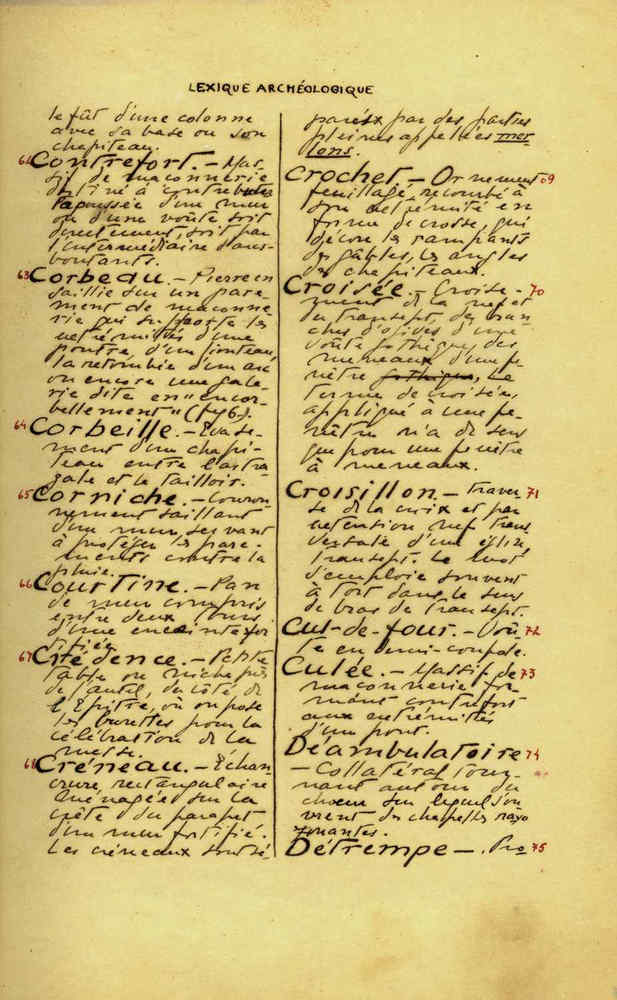 LEXIQUE ARCHÉOLOGIQUE
le fût d'une colonne
avec sa base ou son
chapiteau.
62 Contrefort. – Mas-
sif de maçonnerie
destiné à contrebuter
la poussée d'un mur
ou d'une voûte soit
directement, soit par
l'intermédiaire d'arcs-
boutants.
63 Corbeau. – Pierre en
saillie sur un pare-
ment de maçonne-
rie qui supporte les
extrémités d'une
poutre, d'un linteau,
la retombée d'un arc
ou encore une gale-
rie dite en "encor-
bellement" (fig 6).
64 Corbeille. – Evase-
ment d'un chapi-
teau entre l'astra-
gale et le tailloir.
65 Corniche. – Couron-
nement saillant
d'un mur, servant
à protéger les pare-
ments contre la
pluie.
66 Courtine. – Pan
de mur compris
entre deux tours
d'une enceinte for-
tifiée.
67 Crédence. – Petite
table ou niche près
de l'autel, du côté de
l'Epître, où on pose
les burettes pour la
célébration de la
messe.
68 Créneau. – Échan-
crure, rectangulaire
ménagée sur la
crête du parapet
d'un mur fortifié.
Les créneaux sont sé-
parés par des parties
pleines appelées mer-
lons.
Crochet – Ornement 69
feuillagé, recourbé à
son extrémité en
forme de crosse, qui
décore les rampants
des gâbles, les angles
des chapiteaux.
Croisée. – Croise- 70
ment de la nef et
du transept, des bran-
ches d'ogives d'une
voûte gothique, des
meneaux d'une fe-
nêtre gothique. Le
terme de croisée,
appliqué à une fe-
nêtre n'a de sens
que pour une fenêtre
à meneaux.
Croisillon. – Traver 71
se de la croix et par
extension nef trans
versale d'une église,
transept. Le mot
s'emploie souvent
à tort dans le sens
de bras de transept.
Cul-de-four. – Voû 72
te en demi-coupole.
Culée. – Massif de 73
maçonnerie for-
mant contrefort
aux extrémités
d'un pont.
Déambulatoire 74
– Collatéral tour-
nant autour du
chœur sur lequel s'ou-
vrent des chapelles rayo
nnantes.
Détrempe – . Pro 75